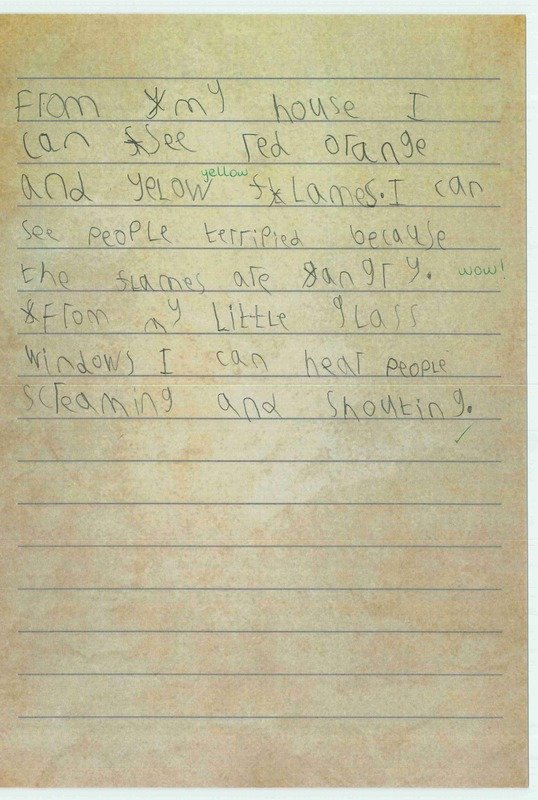 From my house I
can see red orange
yellow
and yelow flames. I can
see people terrified because
the flames are angry. wow!
From my little glass
windows I can hear people
screaming and shouting.